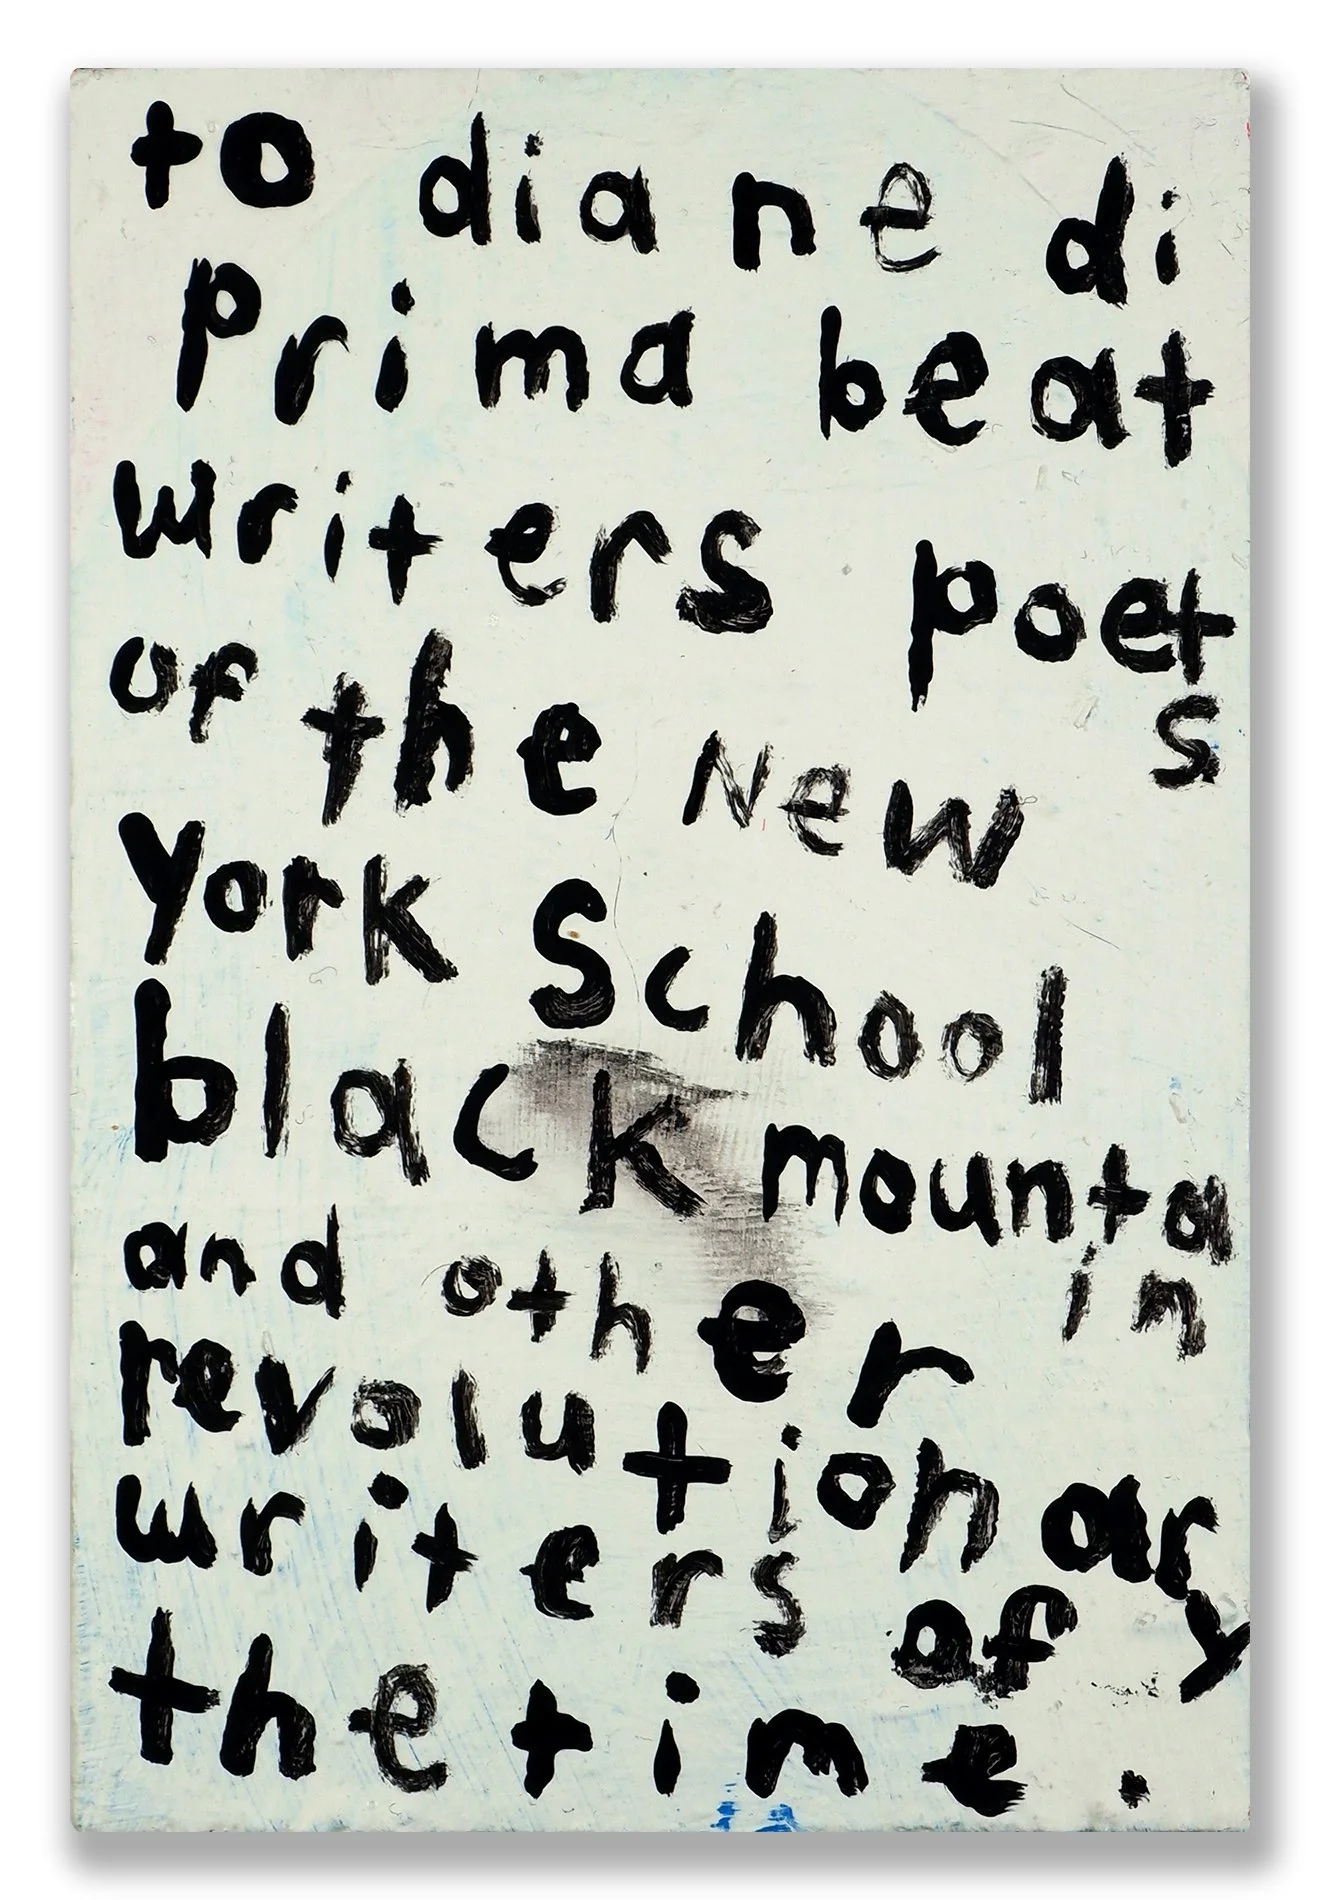 to diane di
prima beat
writers poets
of the New
york School
black mountain
and other
revolutionary
writers of
the time.